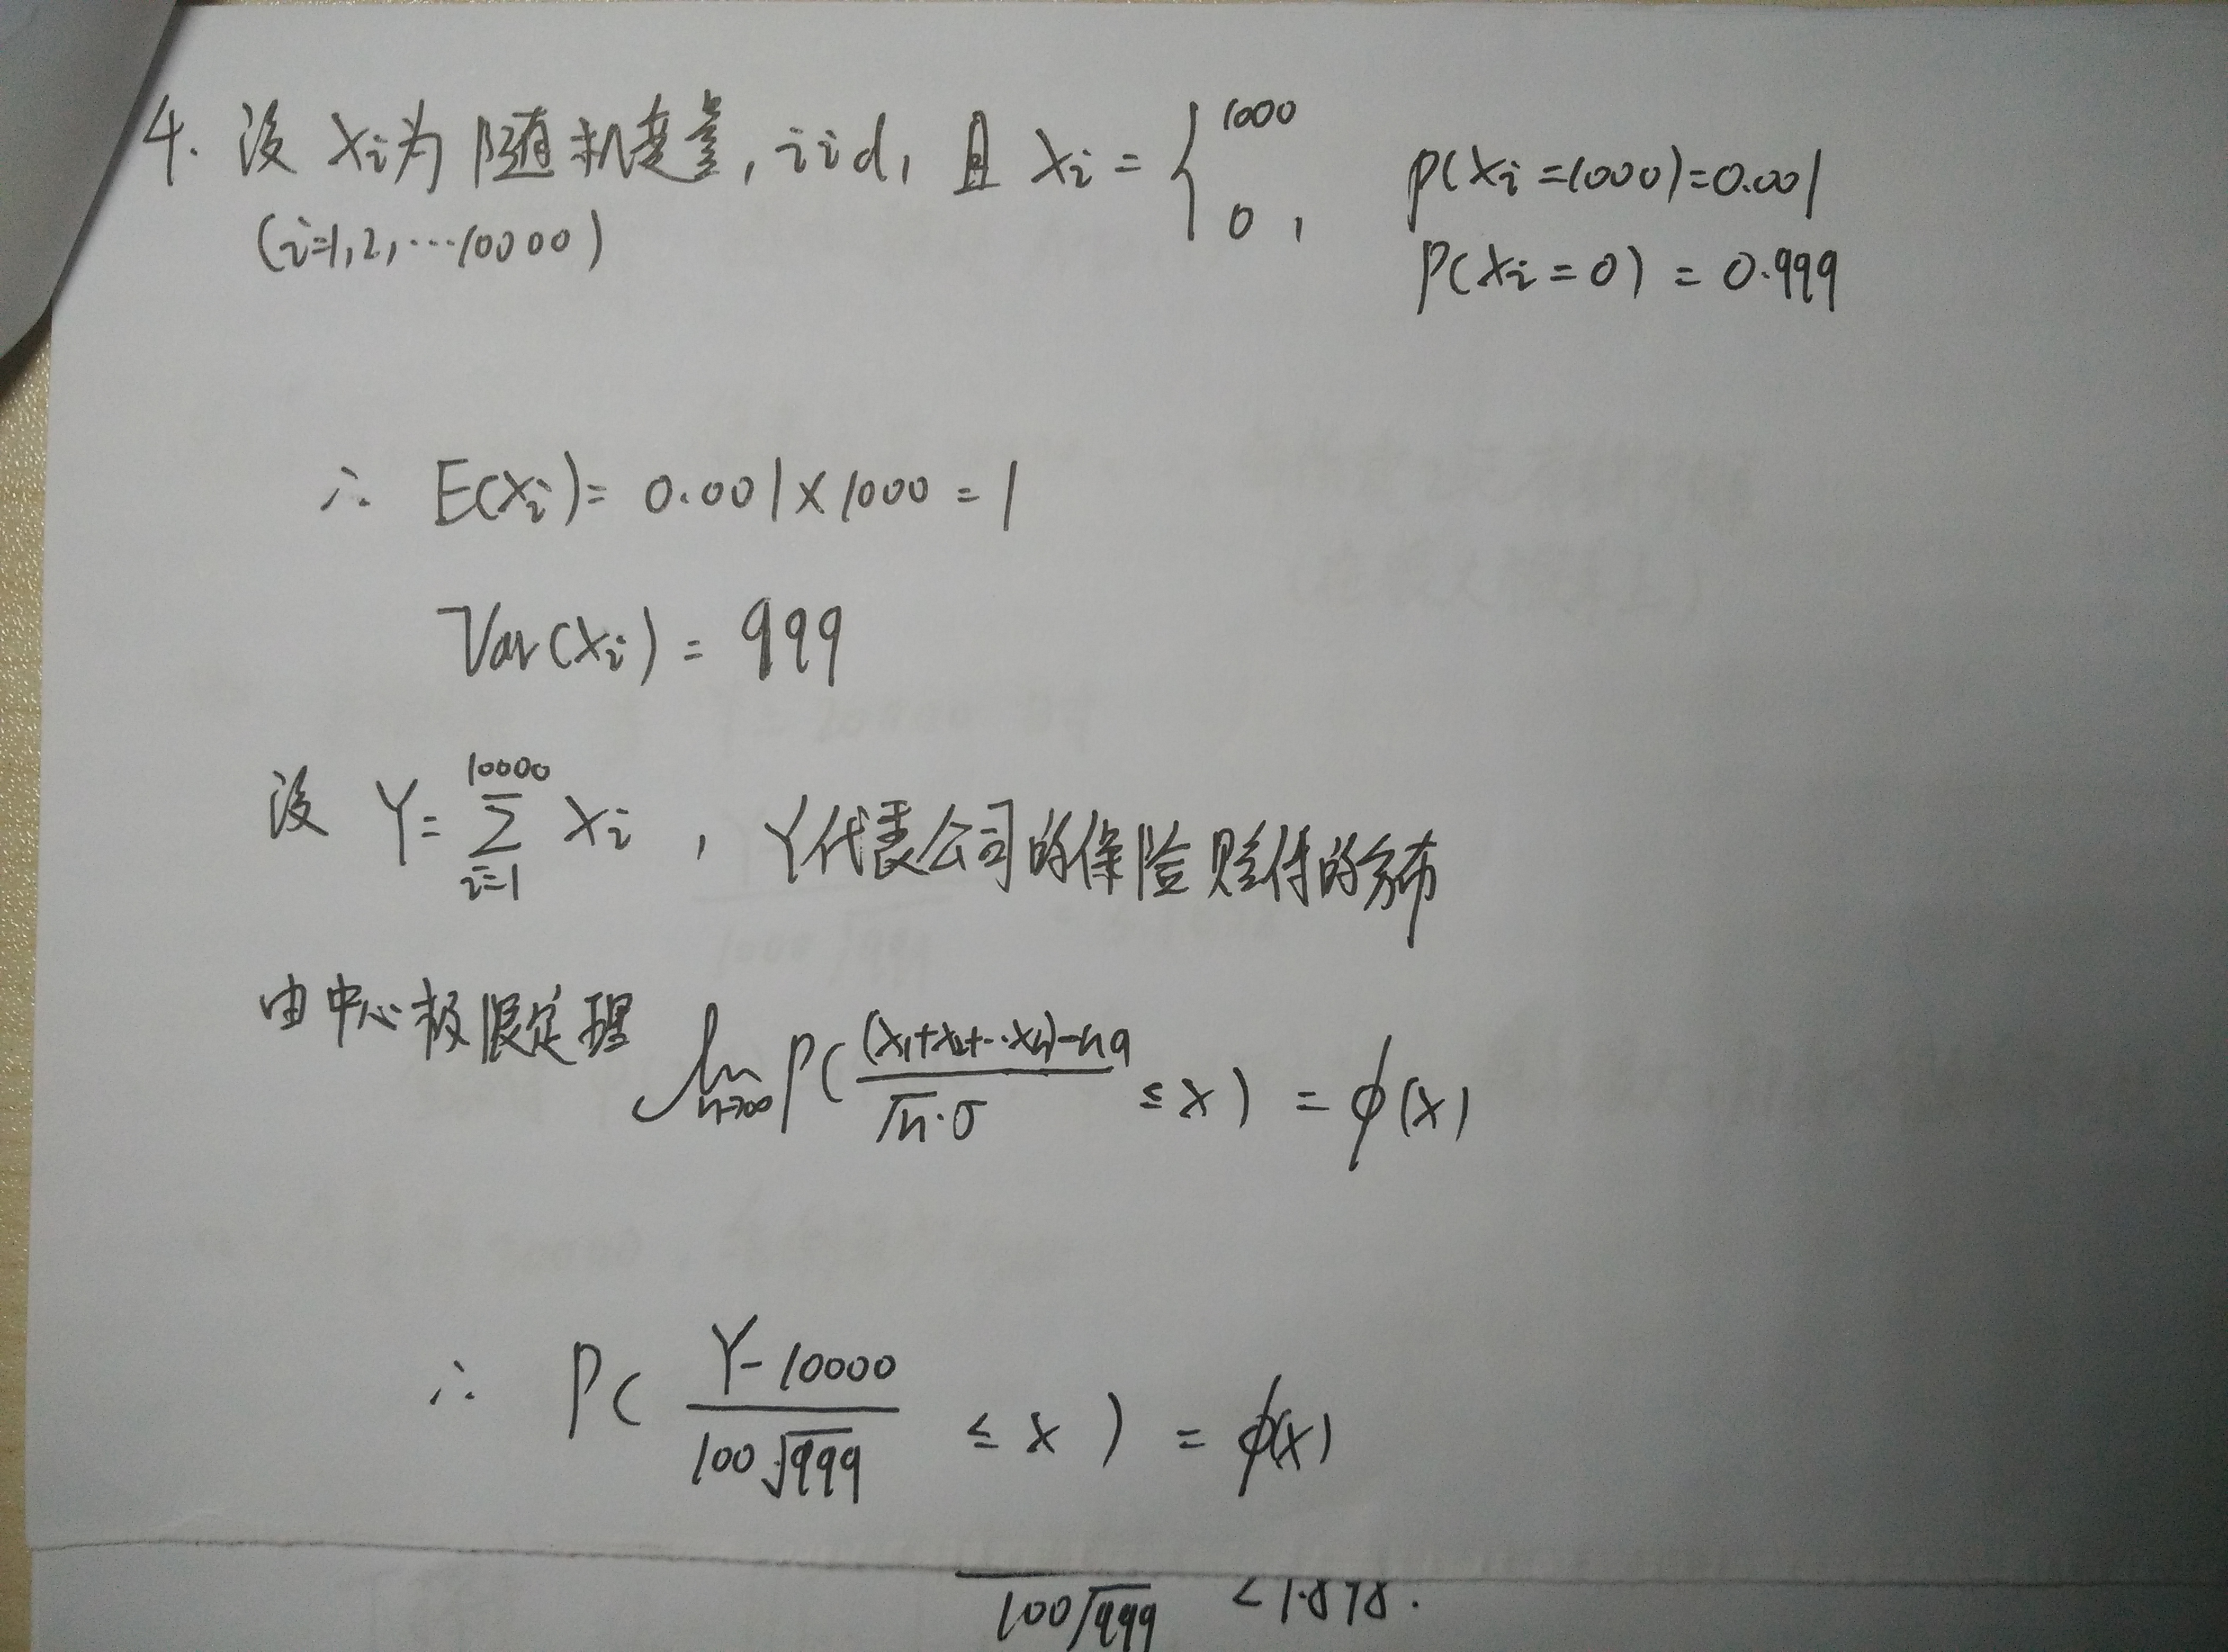 4. 设 Xi为随机变量, iid, 且 Xi = { 1000 P(Xi=1000)=0.001
0, P(Xi=0) = 0.999
(i=1,2,…10000)
∴ E(Xi)= 0.001×1000 = 1
Var(Xi) = 999
设 Y= ∑_{i=1}^{10000} Xi , Y代表公司的保险赔付的分布
由中心极限定理 lim_{n→∞} P( \frac{(X1+X2+…Xn)-na}{√n·σ} ≤ x ) = ϕ(x)
∴ P( \frac{Y-10000}{100√999} ≤ x ) = ϕ(x)
100√999